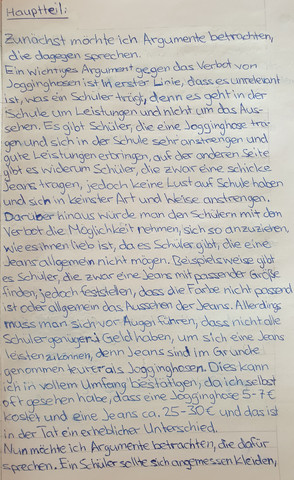 Hauptteil:
Zunächst möchte ich Argumente betrachten,
die dagegen sprechen.
Ein wichtiges Argument gegen das Verbot von
Jogginghosen ist in erster Linie, dass es unrelevant
ist, was ein Schüler trägt, denn es geht in der
Schule um Leistungen und nicht um das Aus-
sehen. Es gibt Schüler, die eine Jogginghose tra-
gen und sich in der Schule sehr anstrengen und
gute Leistungen erbringen, auf der anderen Seite
gibt es wiederum Schüler, die zwar eine schicke
Jeans tragen, jedoch keine Lust auf Schule haben
und sich in keinster Art und Weise anstrengen.
Darüber hinaus würde man den Schülern mit dem
Verbot die Möglichkeit nehmen, sich so anzuziehen,
wie es ihnen lieb ist, da es Schüler gibt, die eine
Jeans allgemein nicht mögen. Beispielsweise gibt
es Schüler, die zwar eine Jeans mit passender Größe
finden, jedoch feststellen, dass die Farbe nicht passend
ist oder allgemein das Aussehen der Jeans. Allerdings
muss man sich vor Augen führen, dass nicht alle
Schüler genügend Geld haben, um sich eine Jeans
leisten zu können, denn Jeans sind im Grunde
genommen teurer als Jogginghosen. Dies kann
ich in vollem Umfang bestätigen, da ich selbst
oft gesehen habe, dass eine Jogginghose 5-7€
kostet und eine Jeans ca. 25-30€ und das ist
in der Tat ein erheblicher Unterschied.
Nun möchte ich Argumente betrachten, die dafür
sprechen. Ein Schüler sollte sich angemessen kleiden,